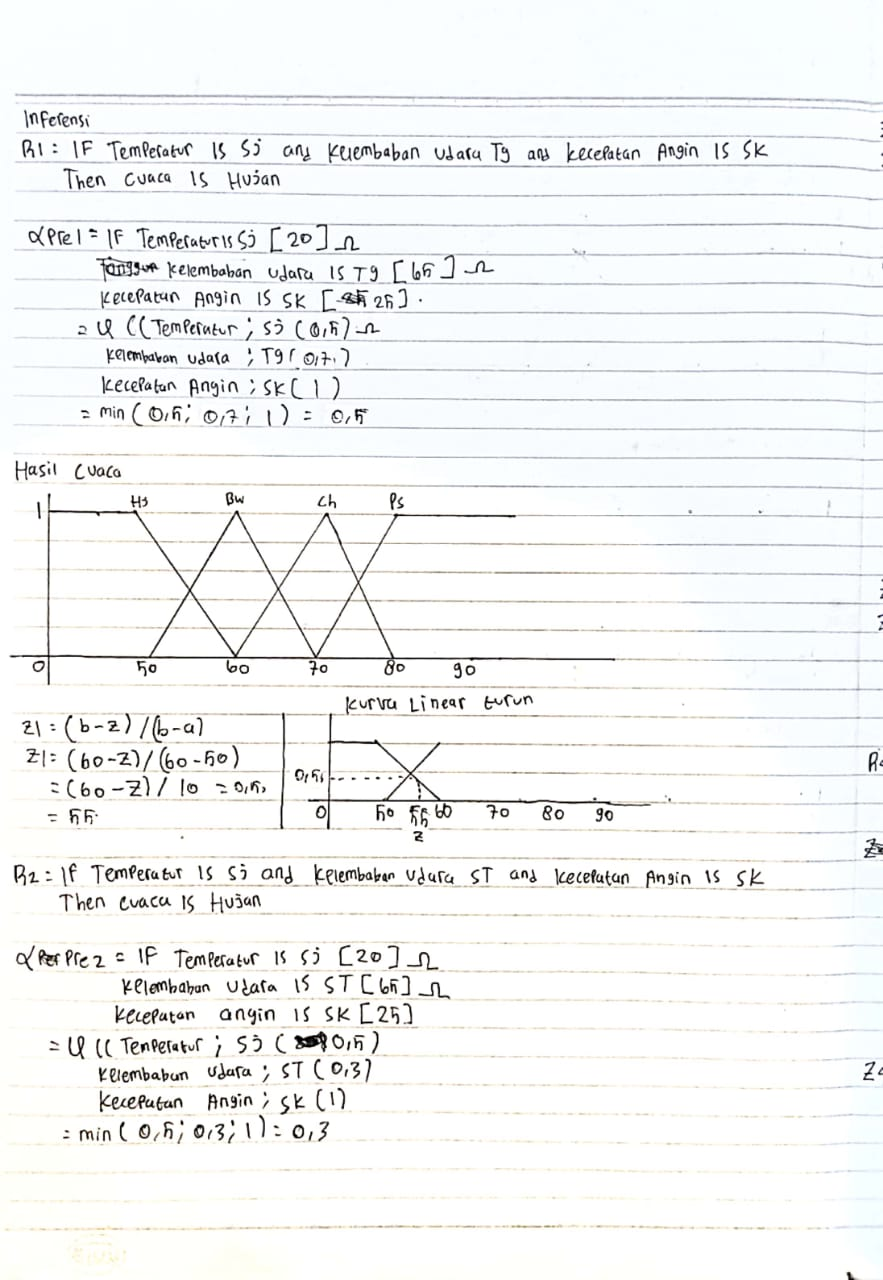 Inferensi
R1 = IF Temperatur IS Sj and Kelembaban Udara Tg and Kecepatan Angin IS SK
Then Cuaca IS Hujan
α Pre1 = IF Temperatur IS Sj [20] ∩
Kelembaban Udara IS Tg [65] ∩
Kecepatan Angin IS SK [25].
= μ ((Temperatur ; Sj (0,5) ∩
Kelembaban Udara ; Tg (0,7.)
Kecepatan Angin ; SK (1)
= min (0,5; 0,7; 1) = 0,5
Hasil Cuaca
Hj Bw Ch Ps
1
0 50 60 70 80 90
Kurva Linear turun
Z1 = (b-z) / (b-a)
Z1 = (60-z) / (60-50)
= (60-z) / 10 = 0,5
= 55
0,5
0 50 55 60 70 80 90
z
R2 = If Temperatur IS Sj and Kelembaban Udara ST and Kecepatan Angin IS SK
Then Cuaca IS Hujan
α Pre2 = IF Temperatur IS Sj [20] ∩
Kelembaban Udara IS ST [65] ∩
Kecepatan angin IS SK [25]
= μ ((Temperatur ; Sj (0,5)
Kelembaban Udara ; ST (0,3)
Kecepatan Angin ; SK (1)
= min (0,5; 0,3; 1) = 0,3